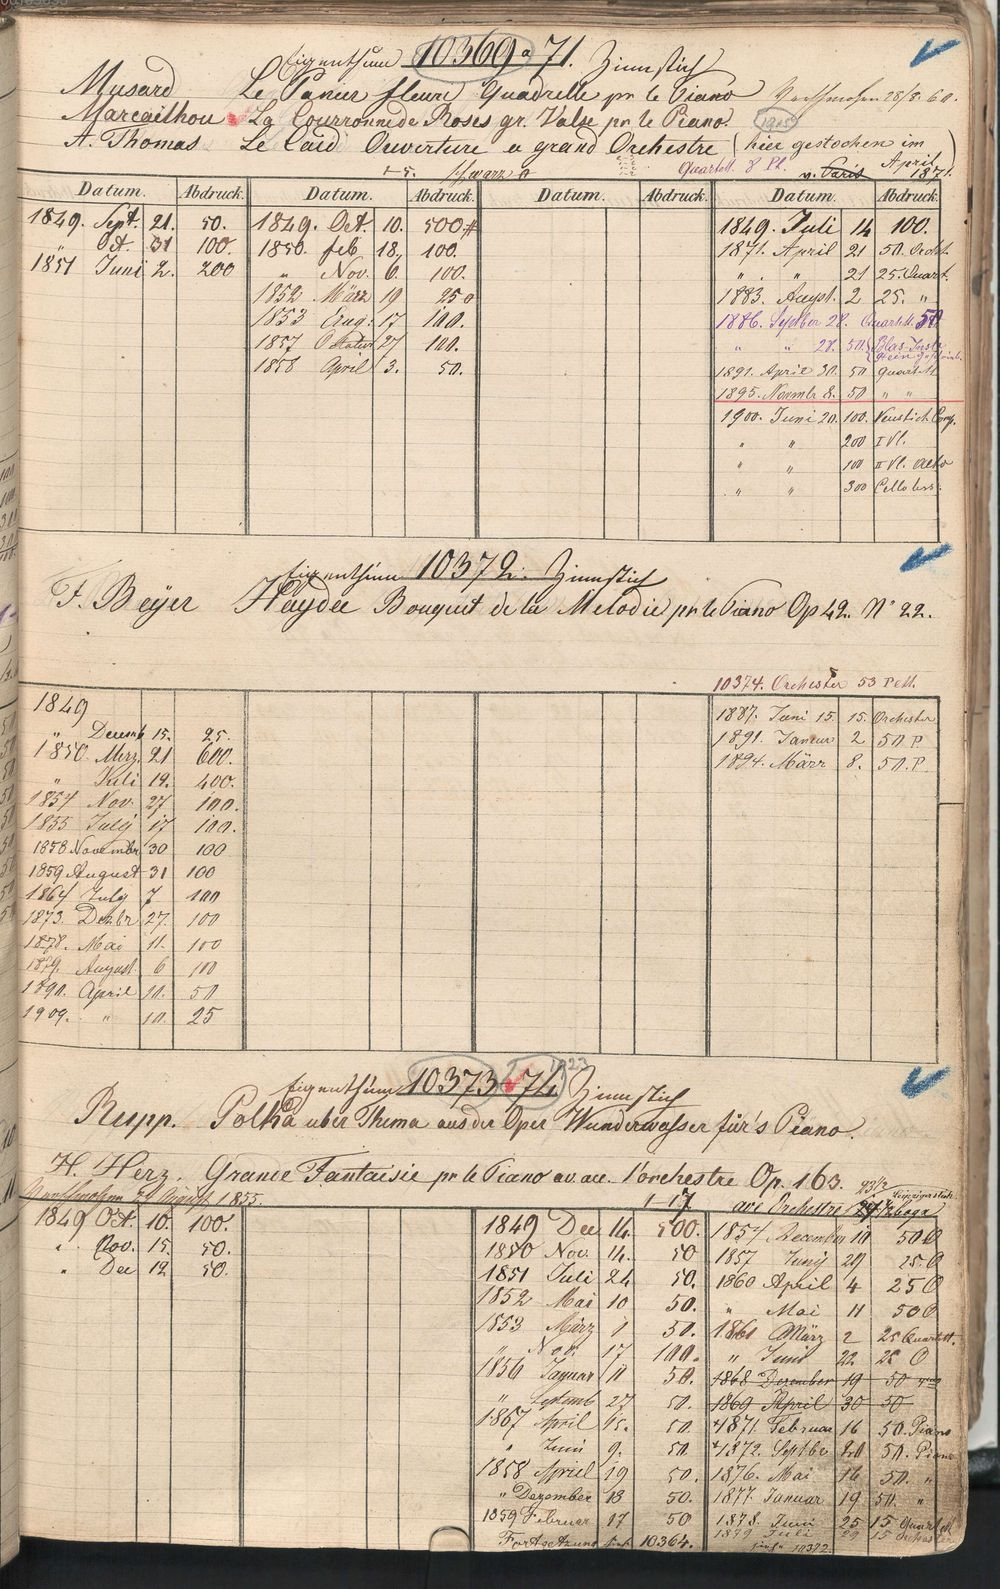 Eigenthum 10369 a 71. Zinnstich
Musard Le Panier fleuri Quadrille pr le Piano
Marcailhou La Courronne de Roses gr. Valse pr le Piano. 1915
A. Thomas Le Caid Ouverture a grand Orchestre (hier gestochen im
April 1871.)
Quartett 8 Pl. v. Paris
Datum. Abdruck. Datum. Abdruck. Datum. Abdruck. Datum. Abdruck.
1849. Sept. 21. 50.
" Oct. 31 100.
1851 Juni 2. 200
1849. Oct. 10. 500
1850. feb 18. 100.
" Nov. 6. 100.
1852 März 19 250
1853 Aug. 17 100.
1857 27 100.
1858 April 3. 50.
1849. Juli 14 100.
1871. April 21 50. Orchst.
" " 21 25. Quart.
1883. August. 2 25. "
1886. Septber 28. Quartett 50
" " 28. 50
1891. April 30. 50 quartett
1895. Novembr 8. 50 " "
1900. Juni 20. 100. Neustich Comp.
" " 200 I Vl.
" " 100 II Vl. Alto
" " 300 Cello bass.
Eigenthum 10372. Zinnstich
F. Beyer Haydée Bouquet de la Melodie pr le Piano Op 42. No 22.
10374. Orchester 53 Pltt.
1849
" Decemb 15. 25.
1850. Merz 21 600.
" Juli 12. 400.
1854 Nov. 27 100.
1855 July 17 100.
1858 November 30 100
1859 August 31 100
1864 July 7 100
1873. Dezbr 27. 100
1878. Mai 11. 100
1879. August 6 100
1890. April 10. 50
1909. " 10. 25
1887. Juni 15. 15. Orchester
1891. Januar 2 50 P.
1894. März 8. 50. P.
Eigenthum 10373 74. Zinnstich
1923
Rupp. Polka uber Thema aus der Oper Wunderwasser für's Piano.
H. Herz. Grande Fantaisie pr le Piano av. acc. l'orchestre Op. 163.
1855.
17 avec Orchestre
1849 Oct. 10. 100.
" Nov. 15. 50.
" Dec 12 50.
1849 Dec 14. 500.
1850 Nov. 14. 50
1851 Juli 24 50.
1852 Mai 10 50.
1853 März 1 50.
" Nov. 17 100.
1856 Januar 11 50.
" Septemb 27 50.
1857 April 15. 50.
" Juni 9. 50
1858 April 19 50.
" Dezember 18 50.
1859 Februar 17 50
Fortsetzung 10364.
1854 Dezember 10 50 O
1857 Juny 29 25. O
1860 April 4 25 O
" Mai 11 50 O
1861 März 2 25 Quartett.
" Juni 22 25 O
1868 Dezember 19 50
1869 April 30 50
1871. Februar 16 50. Piano
1872. Septber 50. Piano
1876. Mai 16 50. "
1877. Januar 19 50. "
1878. Juni 25 15 Quartett
1879 Juli 29 15 Orchester
10372.